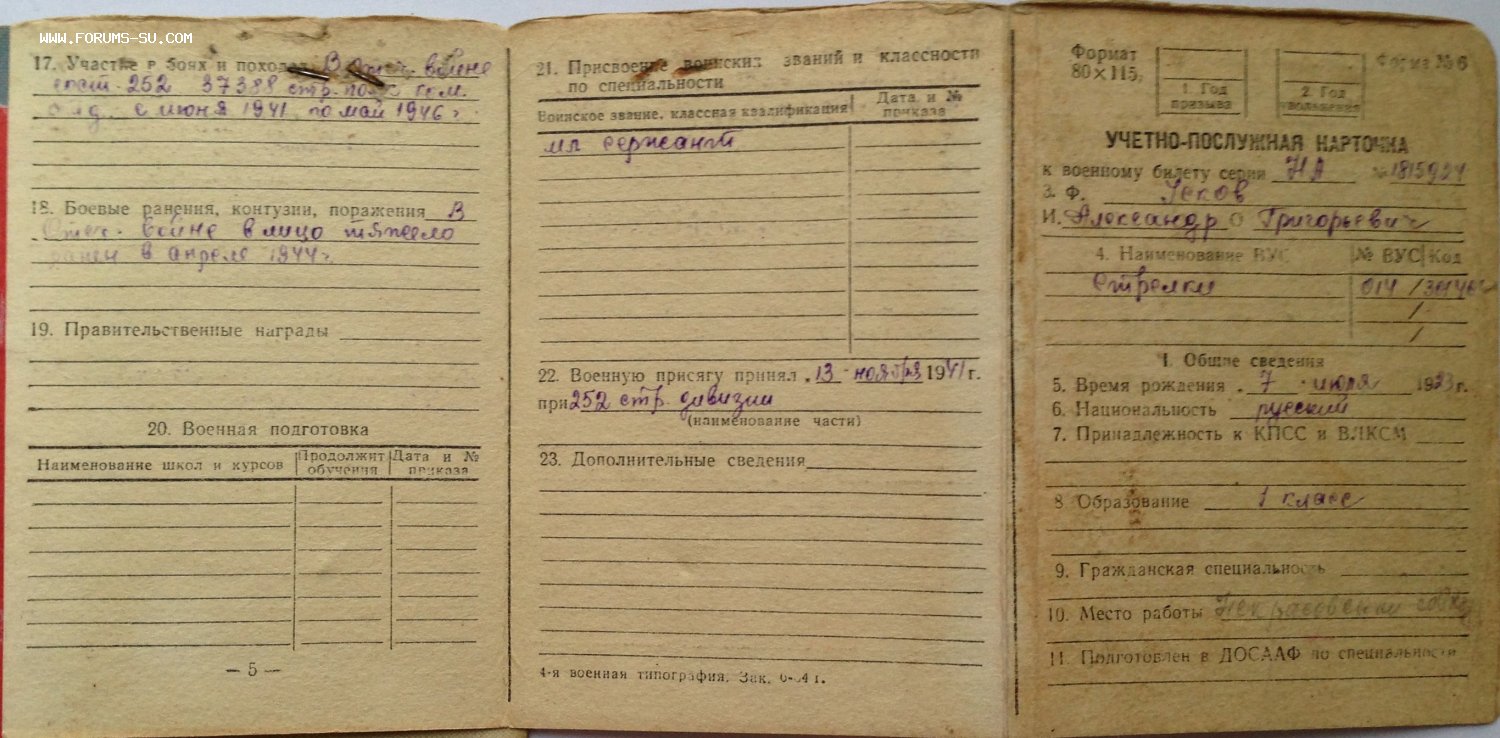 WWW.FORUMS-SU.COM
17. Участие в боях и походах В Отеч. войне
сост. 252 37388 стр. полк ком.
отд. с июня 1941 по май 1946 г.
18. Боевые ранения, контузии, поражения В
Отеч. войне в лицо тяжело
ранен в апреле 1944 г
19. Правительственные награды
20. Военная подготовка
Наименование школ и курсов
Продолжит обучения
Дата и № приказа
— 5 —
21. Присвоение воинских званий и классности
по специальности
Воинское звание, классная квалификация
Дата и № приказа
мл сержант
22. Военную присягу принял „13" ноября 1941 г.
при 252 стр. дивизии
(наименование части)
23. Дополнительные сведения
4-я военная типография. Зак.
Формат
80×115
1. Год
призыва
2. Год
увольнения
Форма № 6
УЧЕТНО-ПОСЛУЖНАЯ КАРТОЧКА
к военному билету серии НА № 1815924
3. Ф.
И. Александр О Григорьевич
4. Наименование ВУС
№ ВУС
Код
стрелки
014 /
/
/
I. Общие сведения
5. Время рождения „7" июля 1923 г.
6. Национальность русский
7. Принадлежность к КПСС и ВЛКСМ
8 Образование 1 класс
9. Гражданская специальность
10. Место работы
11. Подготовлен в ДОСААФ по специальности